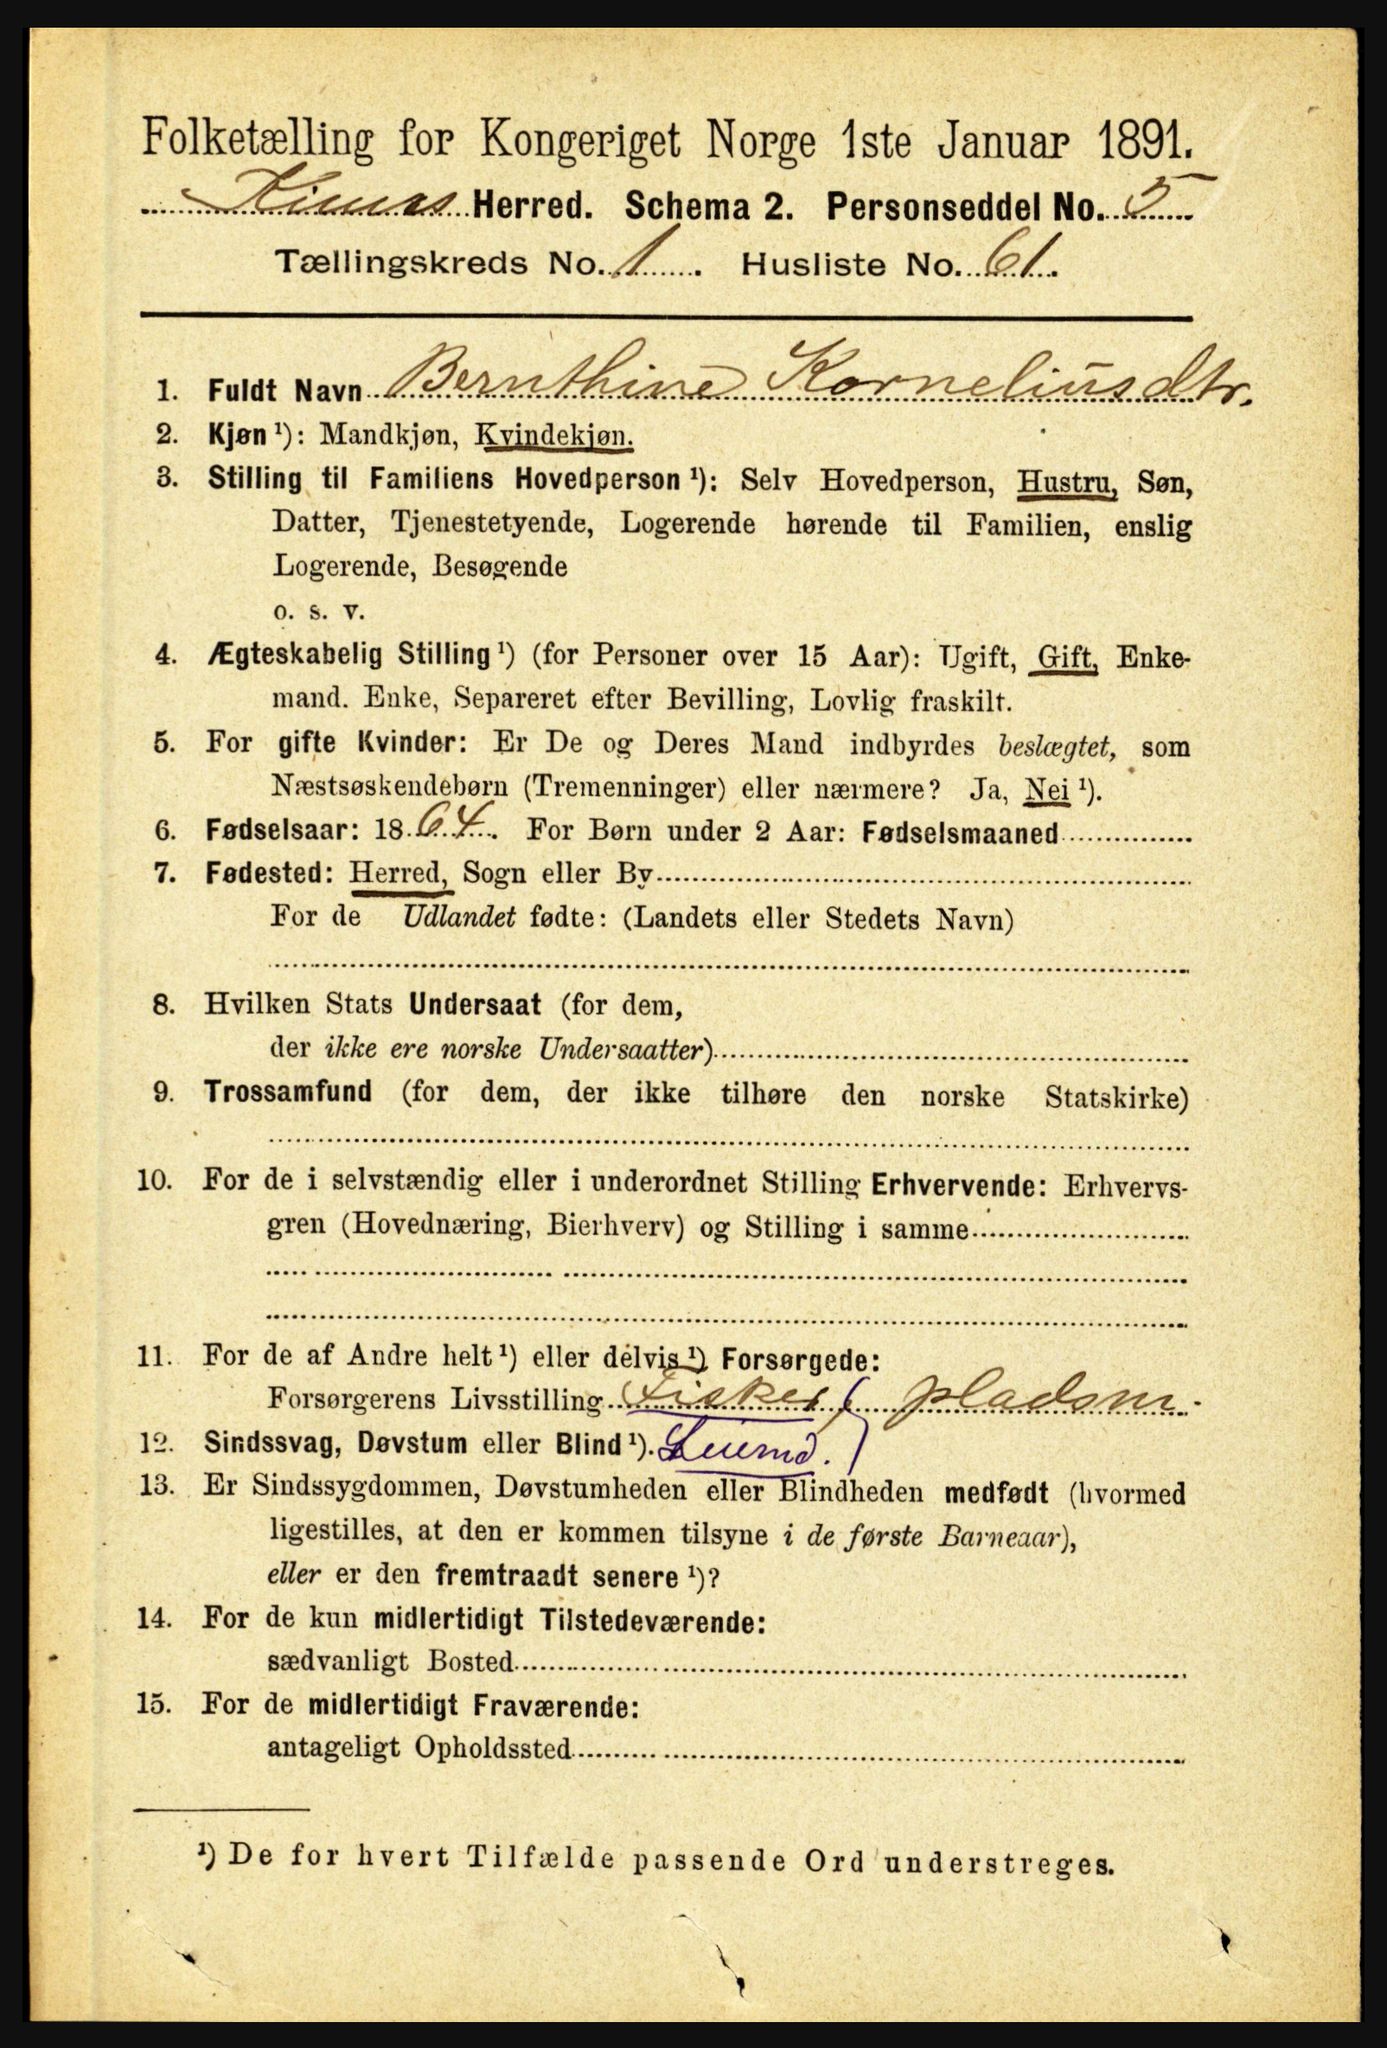 Folketælling for Kongeriget Norge 1ste Januar 1891.
Kinns Herred. Schema 2. Personseddel No. 5
Tællingskreds No. 1. Husliste No. 61.
1. Fuldt Navn Bernthine Korneliusdtr.
2. Kjøn ¹): Mandkjøn, Kvindekjøn.
3. Stilling til Familiens Hovedperson ¹): Selv Hovedperson, Hustru, Søn,
Datter, Tjenestetyende, Logerende hørende til Familien, enslig
Logerende, Besøgende
o. s. v.
4. Ægteskabelig Stilling ¹) (for Personer over 15 Aar): Ugift, Gift, Enke-
mand. Enke, Separeret efter Bevilling, Lovlig fraskilt.
5. For gifte Kvinder: Er De og Deres Mand indbyrdes beslægtet, som
Næstsøskendebørn (Tremenninger) eller nærmere? Ja, Nei ¹).
6. Fødselsaar: 1864. For Børn under 2 Aar: Fødselsmaaned
7. Fødested: Herred, Sogn eller By
For de Udlandet fødte: (Landets eller Stedets Navn)
8. Hvilken Stats Undersaat (for dem,
der ikke ere norske Undersaatter)
9. Trossamfund (for dem, der ikke tilhøre den norske Statskirke)
10. For de i selvstændig eller i underordnet Stilling Erhvervende: Erhvervs-
gren (Hovednæring, Bierhverv) og Stilling i samme
11. For de af Andre helt ¹) eller delvis ¹) Forsørgede:
Forsørgerens Livsstilling Fisker, pladsm.
12. Sindssvag, Døvstum eller Blind ¹). Leiermd.
13. Er Sindssygdommen, Døvstumheden eller Blindheden medfødt (hvormed
ligestilles, at den er kommen tilsyne i de første Barneaar),
eller er den fremtraadt senere ¹)?
14. For de kun midlertidigt Tilstedeværende:
sædvanligt Bosted
15. For de midlertidigt Fraværende:
antageligt Opholdssted
¹) De for hvert Tilfælde passende Ord understreges.